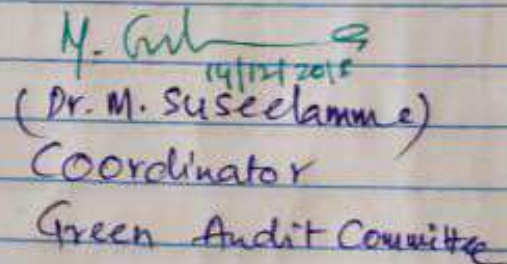 M.
14/12/2018
(Dr. M. Suseelamma)
Coordinator
Green Audit Committee